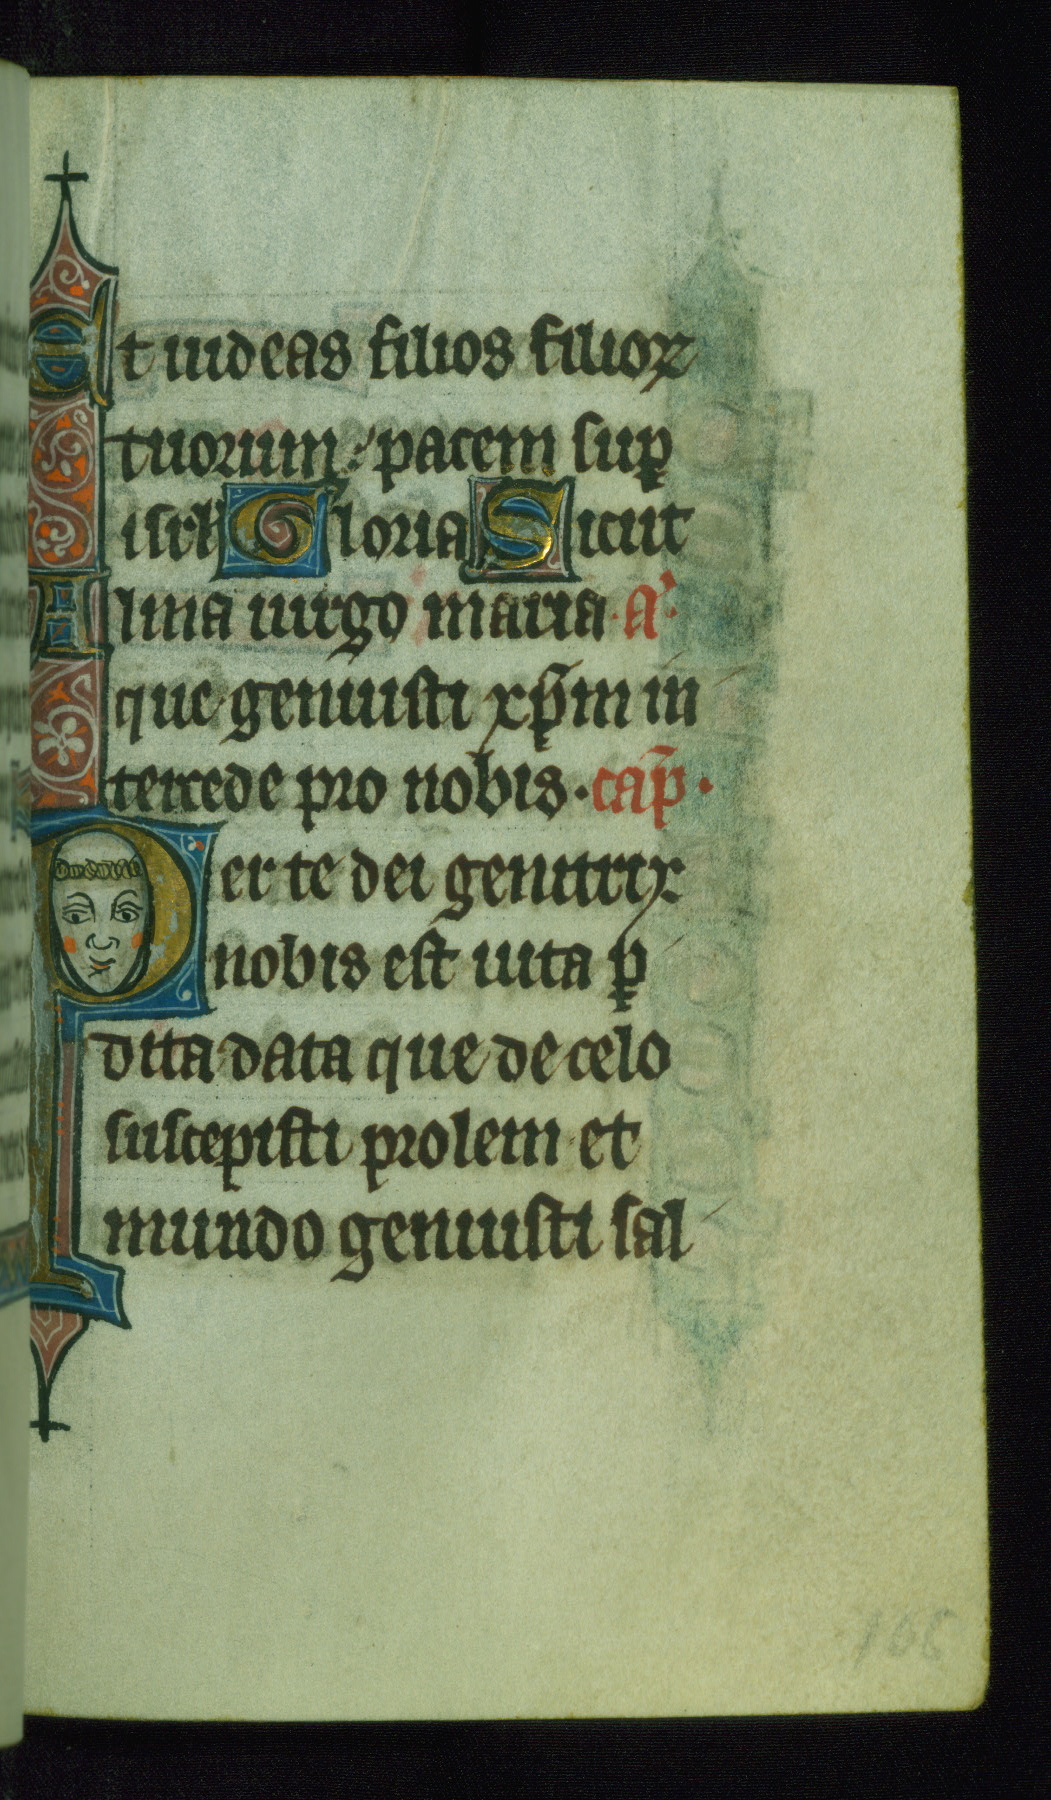 Et uideas filios filioꝝ
tuorum: pacem suꝑ
isrł Gloria Sicut
Alma uirgo maria. A͛.
que genuisti xp̄m in
tercede pro nobis. cap̄.
Per te dei genitrix
nobis est uita ꝑ
dita data que de celo
suscepisti prolem et
mundo genuisti sal
168